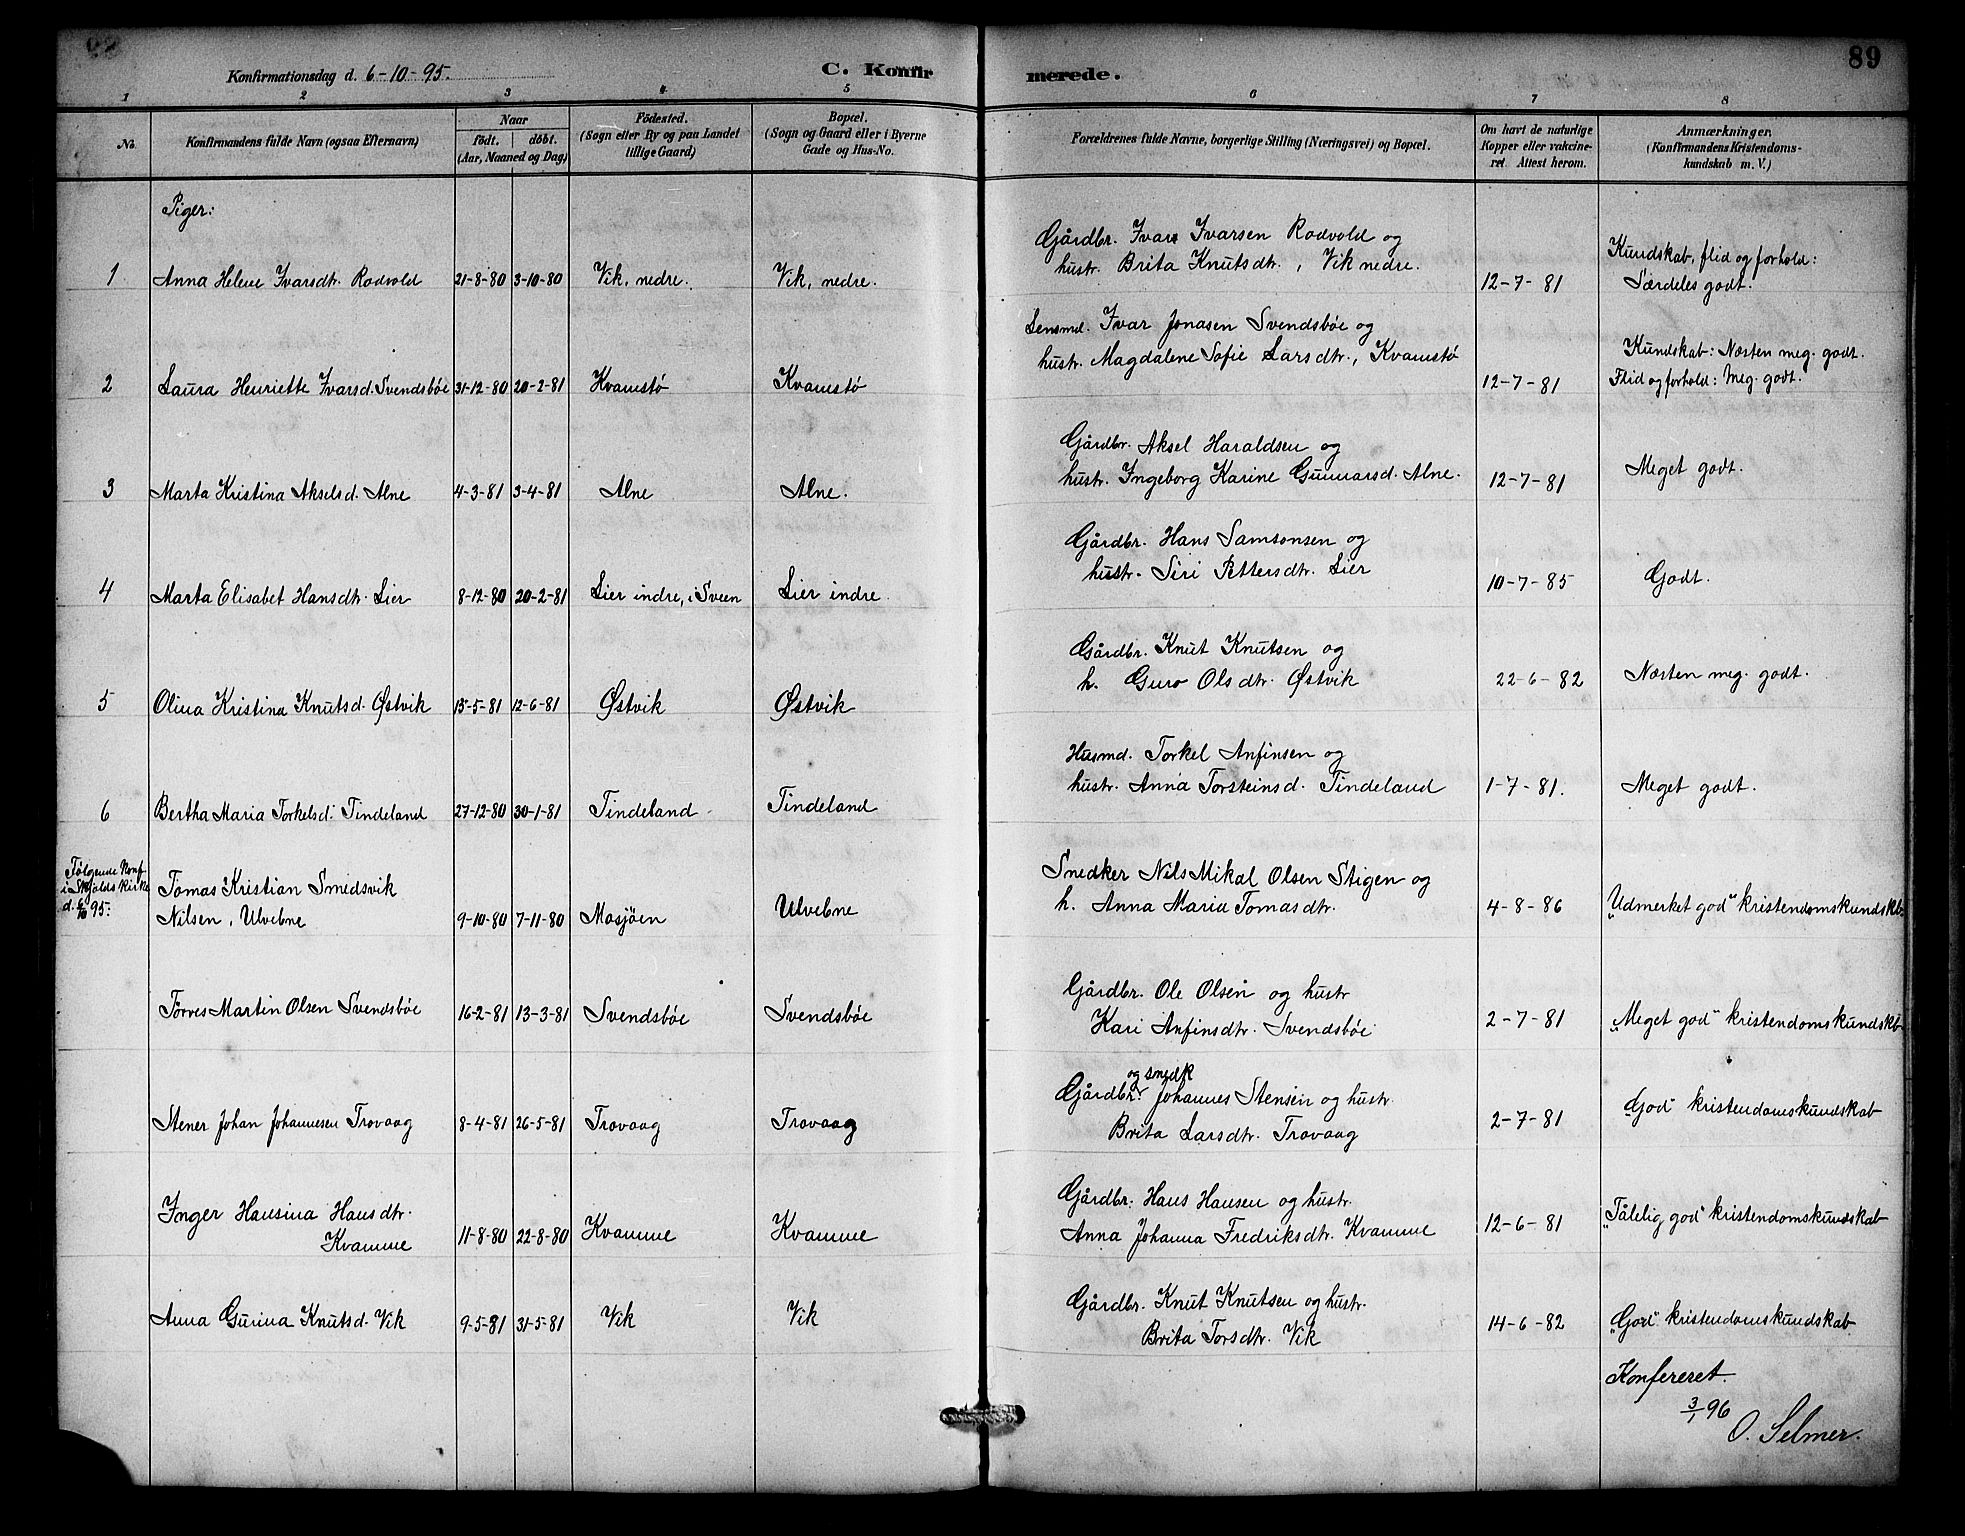 Konfirmationsdag d. 6-10-95.
C. Konfirmerede.
89
1 2 3 4 5 6 7 8
No.
Konfirmandens fulde Navn (ogsaa Efternavn)
Naar
født. døbt.
(Aar, Maaned og Dag)
Fødested.
(Sogn eller By og paa Landet
tillige Gaard)
Bopæl.
(Sogn og Gaard eller i Byerne
Gade og Hus-No.
Forældrenes fulde Navne, borgerlige Stilling (Næringsvei) og Bopæl.
Om havt de naturlige
Kopper eller vakcine-
ret. Attest herom.
Anmærkninger.
(Konfirmandens Kristendoms-
kundskab m. V.)
Piger:
Gårdbr. Ivar Ivarsen Rodvold og
hustr. Brita Knutsdtr., Vik nedre.
Kundskab, flid og forhold:
1 Anna Helene Ivarsdtr. Rodvold 21-8-80 3-10-80 Vik, nedre. Vik, nedre. 12-7-81 Særdeles godt.
Lensmd. Ivar Jonasen Svendsbøe og
hustr. Magdalene Sofie Larsdtr., Kvamstø
Kundskab: Næsten meg. godt.
2 Laura Henriette Ivarsd. Svendsbøe 31-12-80 20-2-81 Kvamstø Kvamstø 12-7-81 Flid og forhold: Meg. godt.
Gårdbr. Aksel Haraldsen og
hustr. Ingeborg Karine Gunnarsd. Alne.
3 Marta Kristina Akselsd. Alne 4-3-81 3-4-81 Alne Alne. 12-7-81 Meget godt.
Gårdbr. Hans Samsonsen og
hustr. Siri Pettersdtr. Lier
4 Marta Elisabet Hansdtr. Lier 8-12-80 20-2-81 Lier indre, i Sveen Lier indre. 10-7-85 Godt.
Gårdbr. Knut Knutsen og
h. Guro Olsdtr. Østvik
5 Olina Kristina Knutsd. Østvik 15-5-81 12-6-81 Østvik Østvik 22-6-82 Næsten meg. godt.
Husmd. Torkel Anfinsen og
hustr. Anna Torsteinsd. Tindeland
6 Bertha Maria Torkelsd. Tindeland 27-12-80 30-1-81 Tindeland Tindeland 1-7-81. Meget godt.
Følgende Konf.
i Skjolds kirke
d. 6/10 95:
Tomas Kristian Smedsvik
Nilsen, Ulvebne 9-10-80 7-11-80 Mosjöen Ulvebne
Snedker Nils Mikal Olsen Stigen og
h. Anna Maria Tomasdtr. 4-8-86 "Udmerket god" kristendomskundskb.
Torres Martin Olsen Svendsbøe 16-2-81 13-3-81 Svendsbøe Svendsbøe
Gårdbr. Ole Olsen og hustr
Kari Anfinsdtr. Svendsbøe 2-7-81 "Meget god" kristendomskundskb
og snedk
Gårdbr. Johannes Stensen og hustr.
Brita Larsdtr. Trovaag
Stener Johan Johannesen Trovaag 8-4-81 26-5-81 Trovaag Trovaag 2-7-81 "God" kristendomskundskab
Inger Hansina Hansdtr.
Kvamme 11-8-80 22-8-80 Kvamme Kvamme
Gårdbr. Hans Hansen og hustr.
Anna Johanna Fredriksdtr. Kvamme 12-6-81 "Tålelig god" kristendomskundskab
Anna Gurina Knutsd. Vik 9-5-81 31-5-81 Vik Vik
Gårdbr. Knut Knutsen og hustr.
Brita Torsdtr. Vik 14-6-82 "God" kristendomskundskab
Konfereret.
3/1 96
O. Selmer.